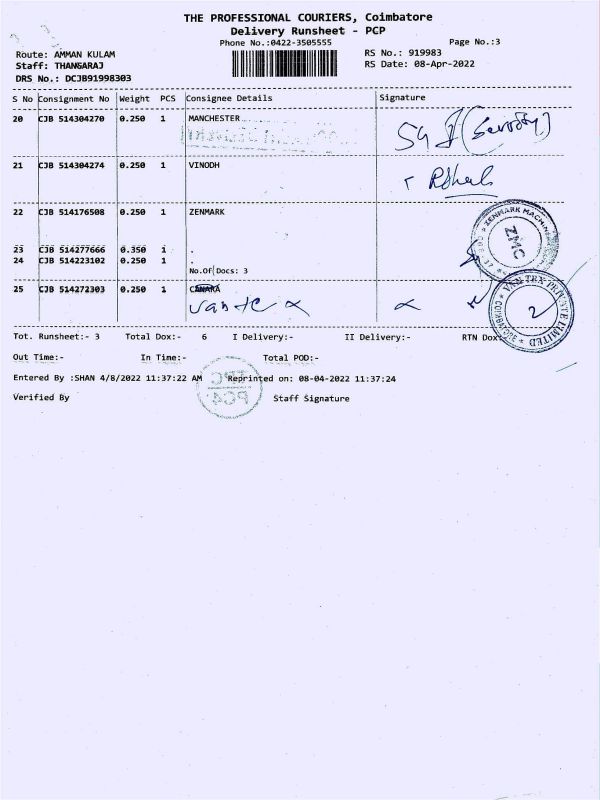 THE PROFESSIONAL COURIERS, Coimbatore
Delivery Runsheet - PCP
Phone No.:0422-3505555 Page No.:3
Route: AMMAN KULAM RS No.: 919983
Staff: THANGARAJ RS Date: 08-Apr-2022
DRS No.: DCJB91998303
S No Consignment No Weight PCS Consignee Details Signature
20 CJB 514304270 0.250 1 MANCHESTER
(Security)
21 CJB 514304274 0.250 1 VINODH
22 CJB 514176508 0.250 1 ZENMARK
ZENMARK MACHINE
ZMC
23 CJB 514277666 0.350 1 .
24 CJB 514223102 0.250 1 .
No.Of Docs: 3
25 CJB 514272303 0.250 1 CANARA
Vantex
VAN TEX PRIVATE LIMITED * COIMBATORE *
2
Tot. Runsheet:- 3 Total Dox:- 6 I Delivery:- II Delivery:- RTN Dox
Out Time:- In Time:- Total POD:-
Entered By :SHAN 4/8/2022 11:37:22 AM Reprinted on: 08-04-2022 11:37:24
Verified By Staff Signature